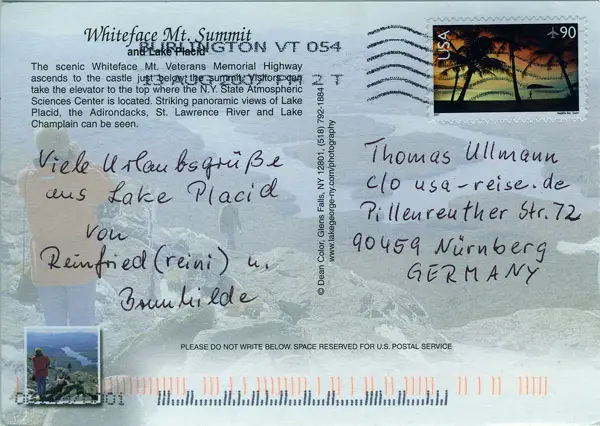 Whiteface Mt. Summit
and Lake Placid
The scenic Whiteface Mt. Veterans Memorial Highway
ascends to the castle just below the summit. Visitors can
take the elevator to the top where the N.Y. State Atmospheric
Sciences Center is located. Striking panoramic views of Lake
Placid, the Adirondacks, St. Lawrence River and Lake
Champlain can be seen.
BURLINGTON VT 054
USA
90
Viele Urlaubsgrüße
aus Lake Placid
von
Reinfried (reini) u.
Brunhilde
© Dean Color, Glens Falls, NY 12801, (518) 792-1884
www.lakegeorge-ny.com/photography
Thomas Ullmann
c/o usa-reise.de
Pillenreuther Str. 72
90459 Nürnberg
GERMANY
PLEASE DO NOT WRITE BELOW. SPACE RESERVED FOR U.S. POSTAL SERVICE